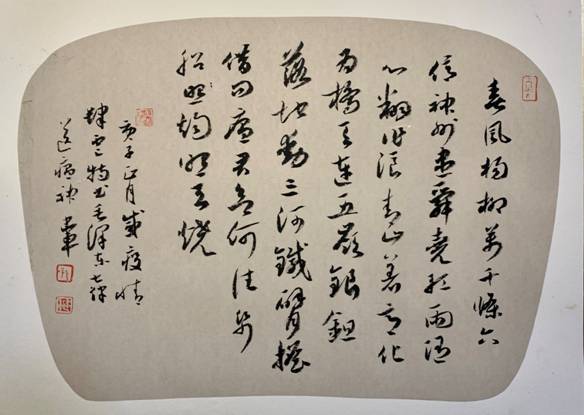 春風楊柳萬千條六
億神州盡舜堯紅雨隨
心翻作浪青山著意化
為橋天連五嶺銀鋤
落地動三河鐵臂搖
借問瘟君欲何往紙
船明燭照天燒
庚子正月感疫情
肆虐特書毛澤東七律
送瘟神